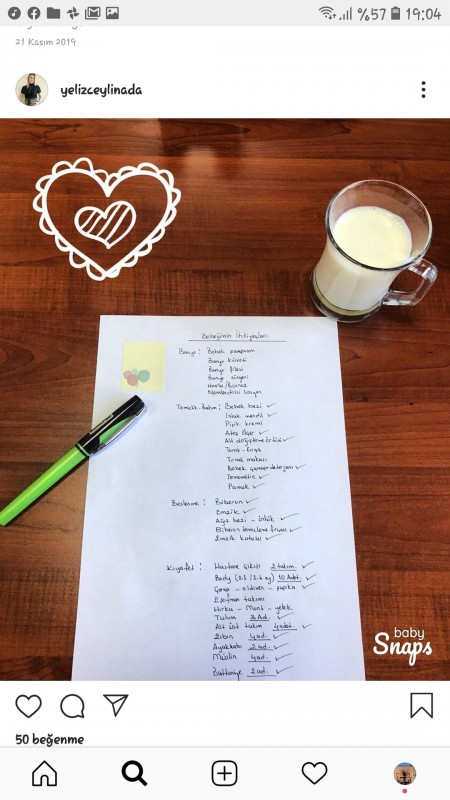 %57 19:04
21 Kasım 2019
yelizceylinada
Bebeğimin İhtiyaçları
Banyo: Bebek şampuanı
Banyo küveti
Banyo filesi
Banyo süngeri
Havlu/Bornoz
Nemlendirici losyon
Temizlik-Bakım: Bebek bezi ✓
Islak mendil ✓
Pişik kremi
Ateş ölçer ✓
Alt değiştirme örtüsü ✓
Tarak-fırça
Tırnak makası
Bebek çamaşır deterjanı ✓
Termometre ✓
Pamuk ✓
Beslenme: Biberon ✓
Emzik ✓
Ağız bezi - önlük ✓
Biberon temizleme fırçası ✓
Emzik kutusu ✓
Kıyafet: Hastane çıkışı 2 takım ✓
Body (0-3 / 3-6 ay) 10 Adet ✓
Çorap - eldiven - şapka ✓
Eşofman takımı
Hırka - Mont - yelek
Tulum 3 Ad. ✓
Alt üst takım 4 adet. ✓
Zıbın 4 ad. ✓
Ayakkabı 2 ad. ✓
Müslin 4 ad. ✓
Battaniye 2 ad. ✓
baby
Snaps
50 beğenme